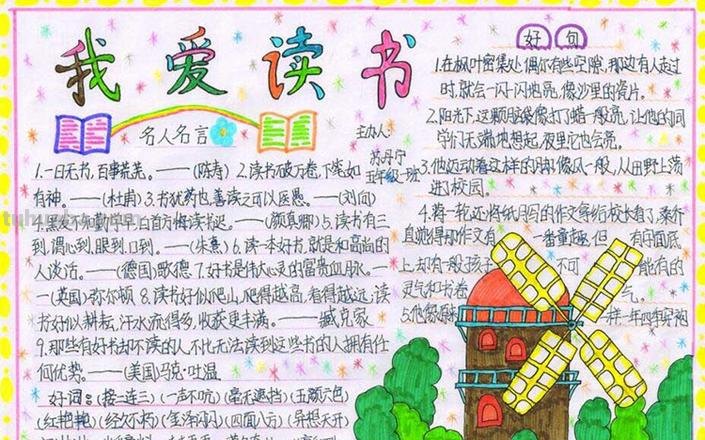 我爱读书
名人名言
主办人:
五年级一班
1.一日无书,百事荒芜。——(陈寿) 2.读书破万卷,下笔如
有神。——(杜甫) 3.书犹药也,善读之可以医愚。——(刘向)
4.黑发不知勤学早,白首方悔读书迟。——(颜真卿) 5.读书有三
到,谓心到,眼到,口到。——(朱熹) 6.读一本好书,就是和高尚的
人谈话。——(德国)歌德. 7.好书是伟大心灵的富贵血脉。—
—(英国)弥尔顿 8.读书好似爬山,爬得越高,看得越远,读
书好似耕耘,汗水流得多,收获更丰满。——臧克家
9.那些有好书却不读的人不比无法读到这些书的人拥有任
何优势。——(美国)马克·吐温
好词:(接二连三)(一声不吭)(毫无遮挡)(五颜六色)
(红艳艳)(经久不朽)(金泽闪闪)(四面八方)(异想天开)
好句
1.在枫叶密集处,偶尔有些空隙,那边有人走过
时,就会一闪一闪地亮,像沙里的瓷片。
2.阳光下,这颗脑袋像打了蜡一般亮,让他的同
学们无端地想起,夜里它也会亮。
3.他迈动着这样的脚,像风一般,从田野上荡
进了校园。
4.蒋一轮还将纸月写的作文拿给校长看了,桑乔
直觉得那作文有 一番童趣,但 有字面底
上去的一般孩子 不可 能有的
灵气和书卷 气。
5.他微微